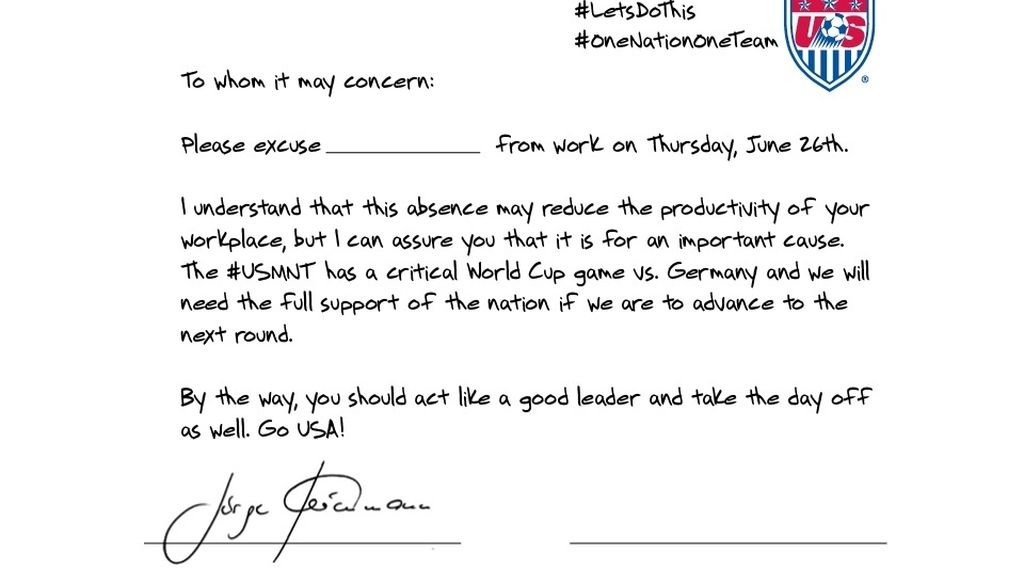 #LetsDoThis
#OneNationOneTeam
US
®
To whom it may concern:
Please excuse from work on Thursday, June 26th.
I understand that this absence may reduce the productivity of your
workplace, but I can assure you that it is for an important cause.
The #USMNT has a critical World Cup game vs. Germany and we will
need the full support of the nation if we are to advance to the
next round.
By the way, you should act like a good leader and take the day off
as well. Go USA!